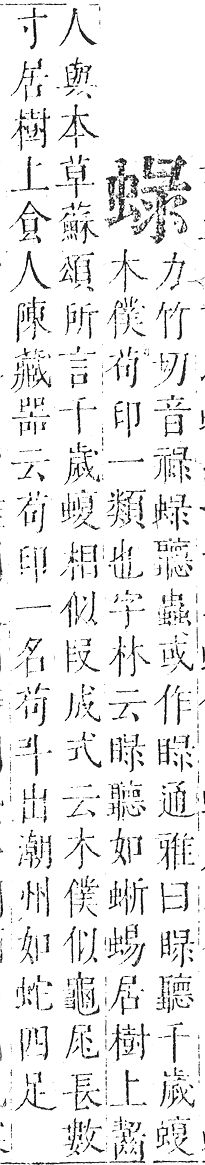 蝝力竹切音祿蝝聽蟲或作𥊍通雅曰𥊍聽千歲蝮
木僕茍印一類也字林云𥊍聽如蜥蜴居樹上齧
人與本草蘇頌所言千歲蝮相似段成式云木僕似龜尾長數
寸居樹上食人陳藏器云茍印一名茍斗出潮州如蛇四足